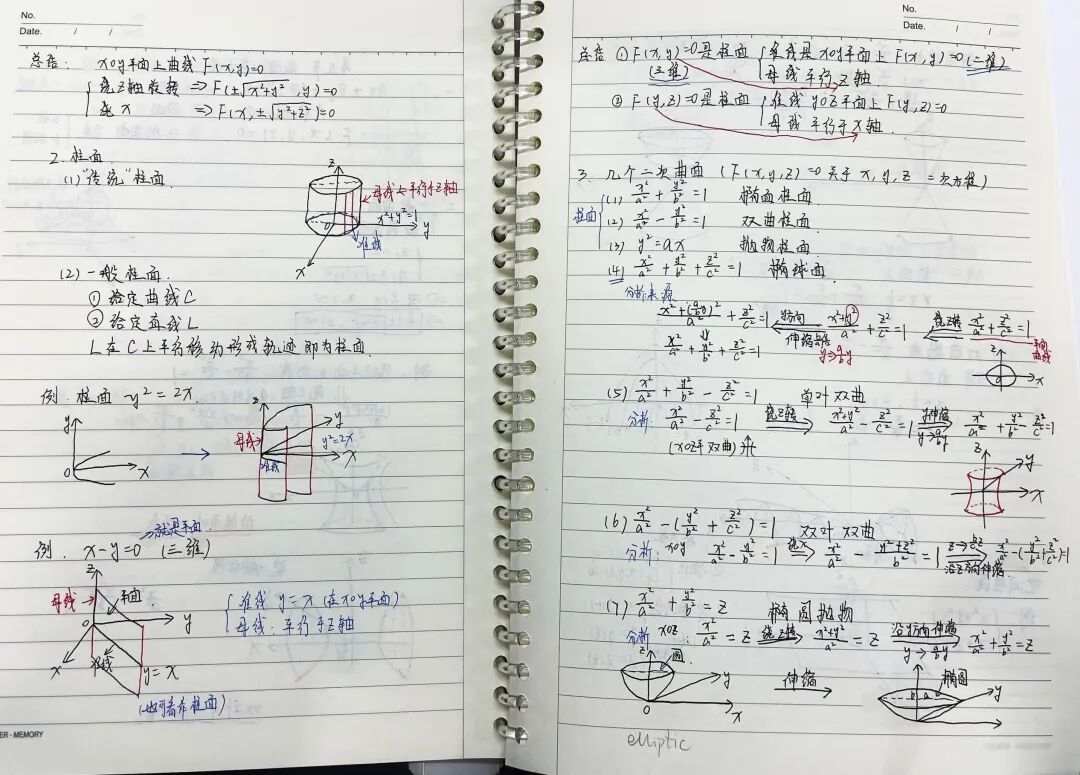 No.
Date. / /
总结: xoy平面上曲线 F(x,y)=0
绕Z轴旋转 ⇒ F(±√x²+y², y)=0
绕 x ⇒ F(x, ±√y²+z²)=0
2. 柱面
(1) "传统"柱面
z
母线L平行于Z轴
x²+y²=1
o
y
准线
x
(2) 一般柱面
① 给定曲线C
② 给定直线L
L在C上平行移动形成轨迹即为柱面
例. 柱面 y²=2x
y
o
x
z
母线
准线
y
y²=2x
x
就是平面
例. x-y=0 (三维)
z
母线
平面
o
y
x
准线
y=x
准线 y=x (在xoy平面)
母线: 平行于Z轴
(也可看作柱面)
ER·MEMORY
No.
Date. / /
总结 ① F(x,y)=0是柱面 (三维)
准线是xoy平面上F(x,y)=0(二维)
母线平行Z轴
② F(y,z)=0是柱面
准线yoz平面上F(y,z)=0
母线平行于x轴
3. 几个二次曲面 (F(x,y,z)=0关于x,y,z 二次方程)
柱面
(1) x²/a² + y²/b² = 1 椭圆柱面
(2) x²/a² - y²/b² = 1 双曲柱面
(3) y²=ax 抛物柱面
(4) x²/a² + y²/b² + z²/c² = 1 椭球面
分析来源
x²+(a/b y)²/a² + z²/c² = 1 ⇐ y方向 伸缩 x²+y²/a² + z²/c² = 1 ⇐ 绕Z转 x²/a² + z²/c² = 1
y→a/b y
平面曲线
⇓
x²/a² + y²/b² + z²/c² = 1
z
o
x
(5) x²/a² + y²/b² - z²/c² = 1 单叶双曲
分析: x²/a² - z²/c² = 1 绕Z转 ⇒ x²+y²/a² - z²/c² = 1 y伸缩 y→a/b y ⇒ x²/a² + y²/b² - z²/c² = 1
(xoz平双曲)
z
y
x
(6) x²/a² - (y²/b² + z²/c²) = 1 双叶双曲
分析: xoy x²/a² - y²/b² = 1 绕x ⇒ x²/a² - y²+z²/b² = 1 z→b/c z 沿z方向伸缩 ⇒ x²/a² - (y²/b² + z²/c²) = 1
(7) x²/a² + y²/b² = z 椭圆抛物
分析 xoz: x²/a² = z 绕Z转 ⇒ x²+y²/a² = z 沿y方向伸缩 y→a/b y ⇒ x²/a² + y²/b² = z
z
圆
y
o
x
伸缩
椭圆
b
a
y
elliptic